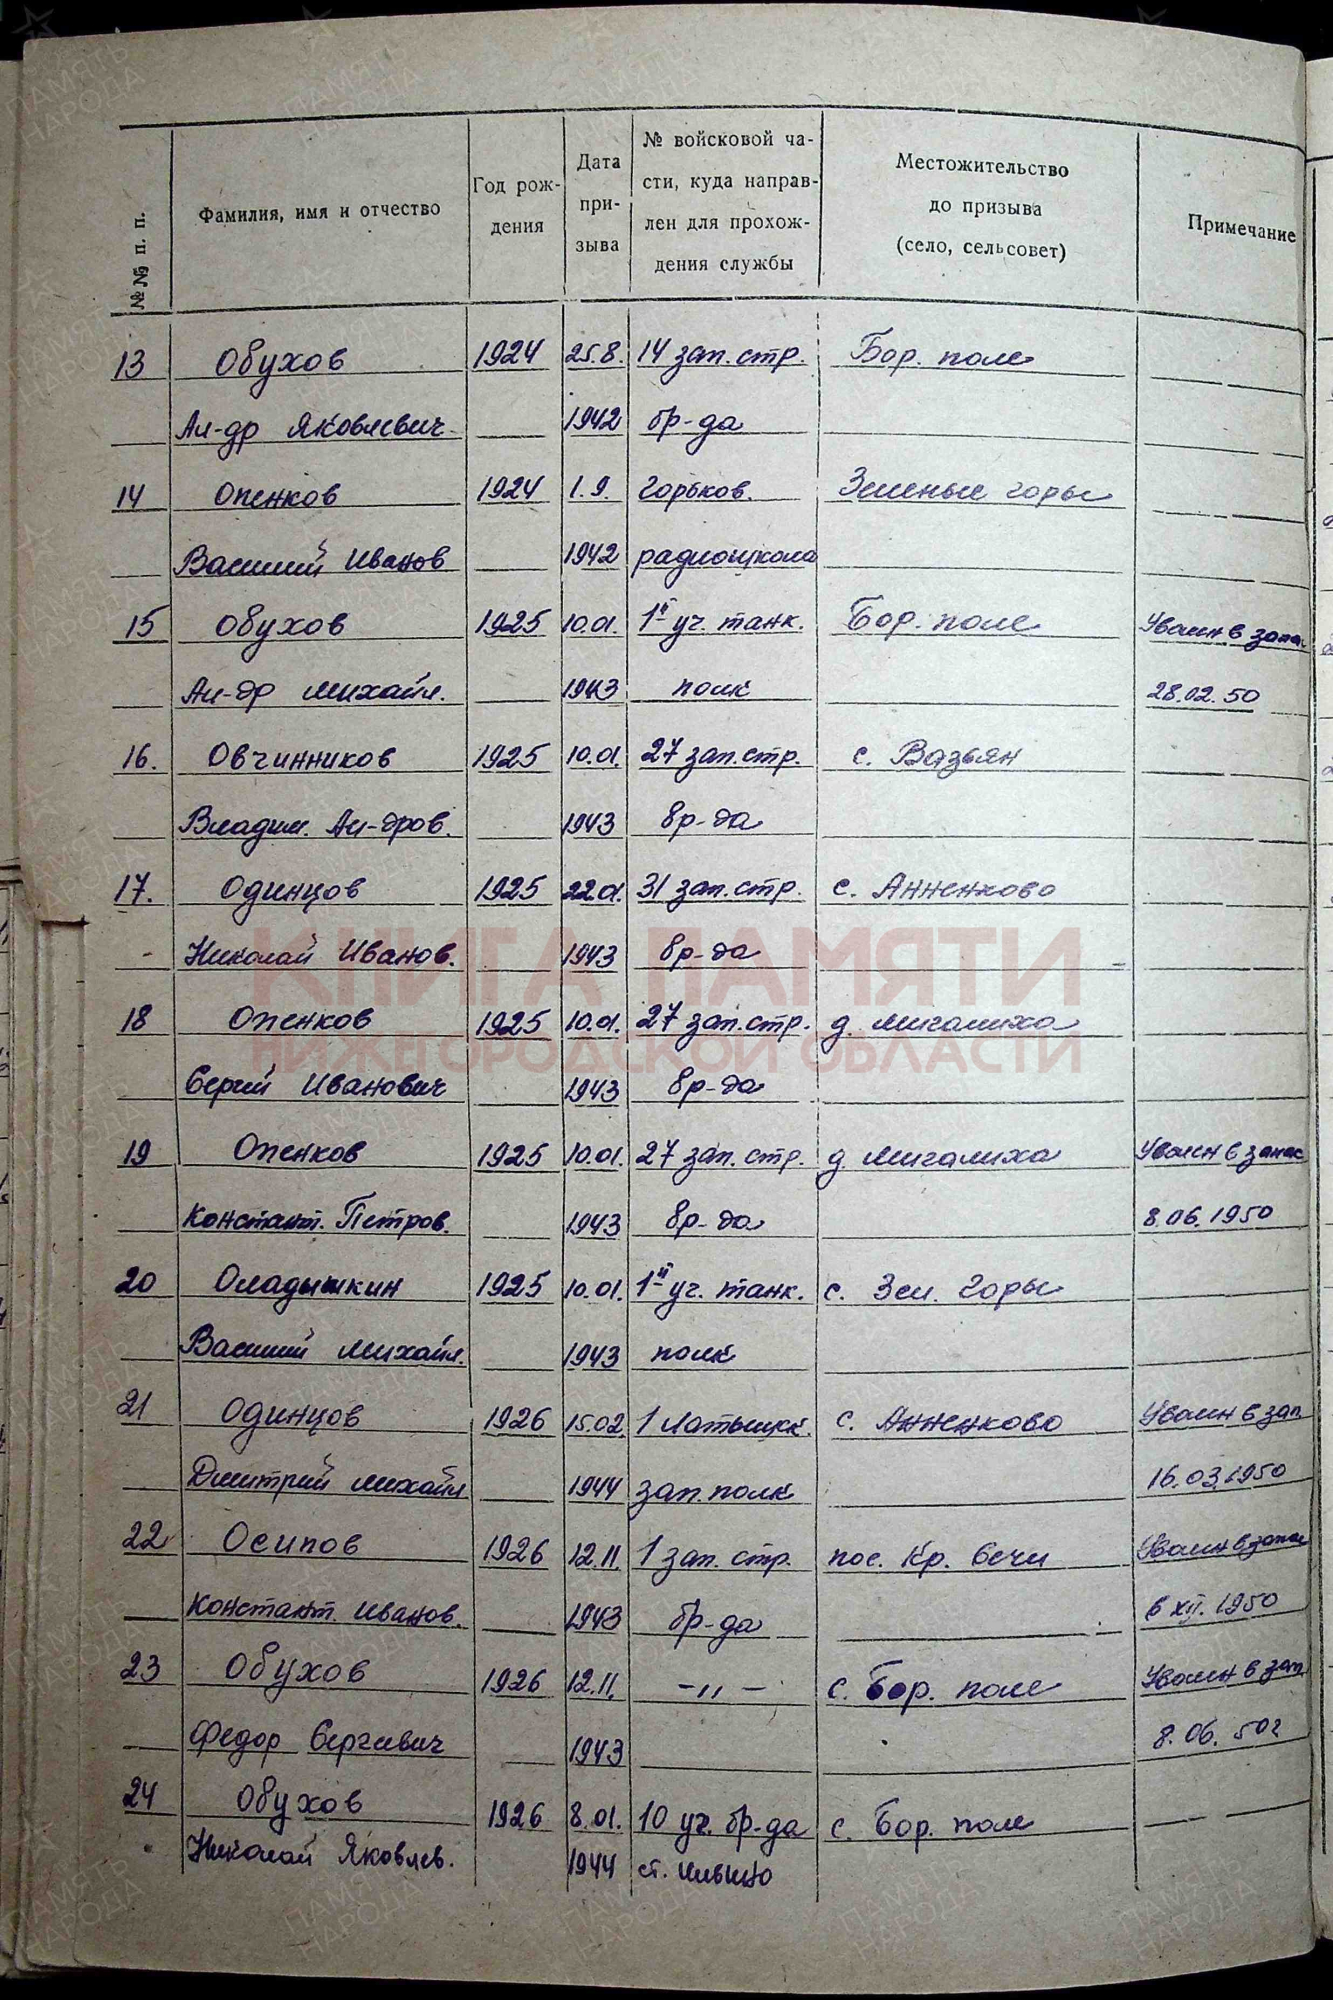 №№ п. п. Фамилия, имя и отчество Год рож- дения Дата при- зыва № войсковой ча- сти, куда направ- лен для прохож- дения службы Местожительство до призыва (село, сельсовет) Примечание
13 Обухов 1924 25.8. 14 зап. стр. Бор. поле
Ал-др Яковлевич 1942 бр-да
14 Опенков 1924 1.9. Горьков. Зеленые горы
Василий Иванов 1942 радиошкола
15 Обухов 1925 10.01. 1й уч. танк. Бор. поле Уволен в запас
Ал-др Михайл. 1943 полк 28.02.50
16. Овчинников 1925 10.01. 27 зап. стр. с. Вазьян
Владим. Ал-дров. 1943 бр-да
17. Одинцов 1925 22.01. 31 зап. стр. с. Анненково
Николай Иванов. 1943 бр-да
КНИГА ПАМЯТИ
18 Опенков 1925 10.01. 27 зап. стр. д. Мигалиха
НИЖЕГОРОДСКОЙ ОБЛАСТИ
Сергей Иванович 1943 бр-да
19 Опенков 1925 10.01. 27 зап. стр. д. Мигалиха Уволен в запас
Констант. Петров. 1943 бр-да 8.06.1950
20 Оладышкин 1925 10.01. 1й уч. танк. с. Зел. Горы
Василий Михайл. 1943 полк
21 Одинцов 1926 15.02. 1 Латышск. с. Анненково Уволен в зап
Дмитрий Михайл 1944 зап. полк 16.03.1950
22 Осипов 1926 12.11. 1 зап. стр. пос. Кр. Сечи Уволен в запас
Констант. Иванов. 1943 бр-да 6 XII. 1950
23 Обухов 1926 12.11. -„- с. Бор. поле Уволен в зап
Федор Сергеевич 1943 8.06.50г
24 Обухов 1926 8.01. 10 уч. бр-да с. Бор. поле
Николай Яковлев. 1944 ст. Ильино
ПАМЯТЬ НАРОДА